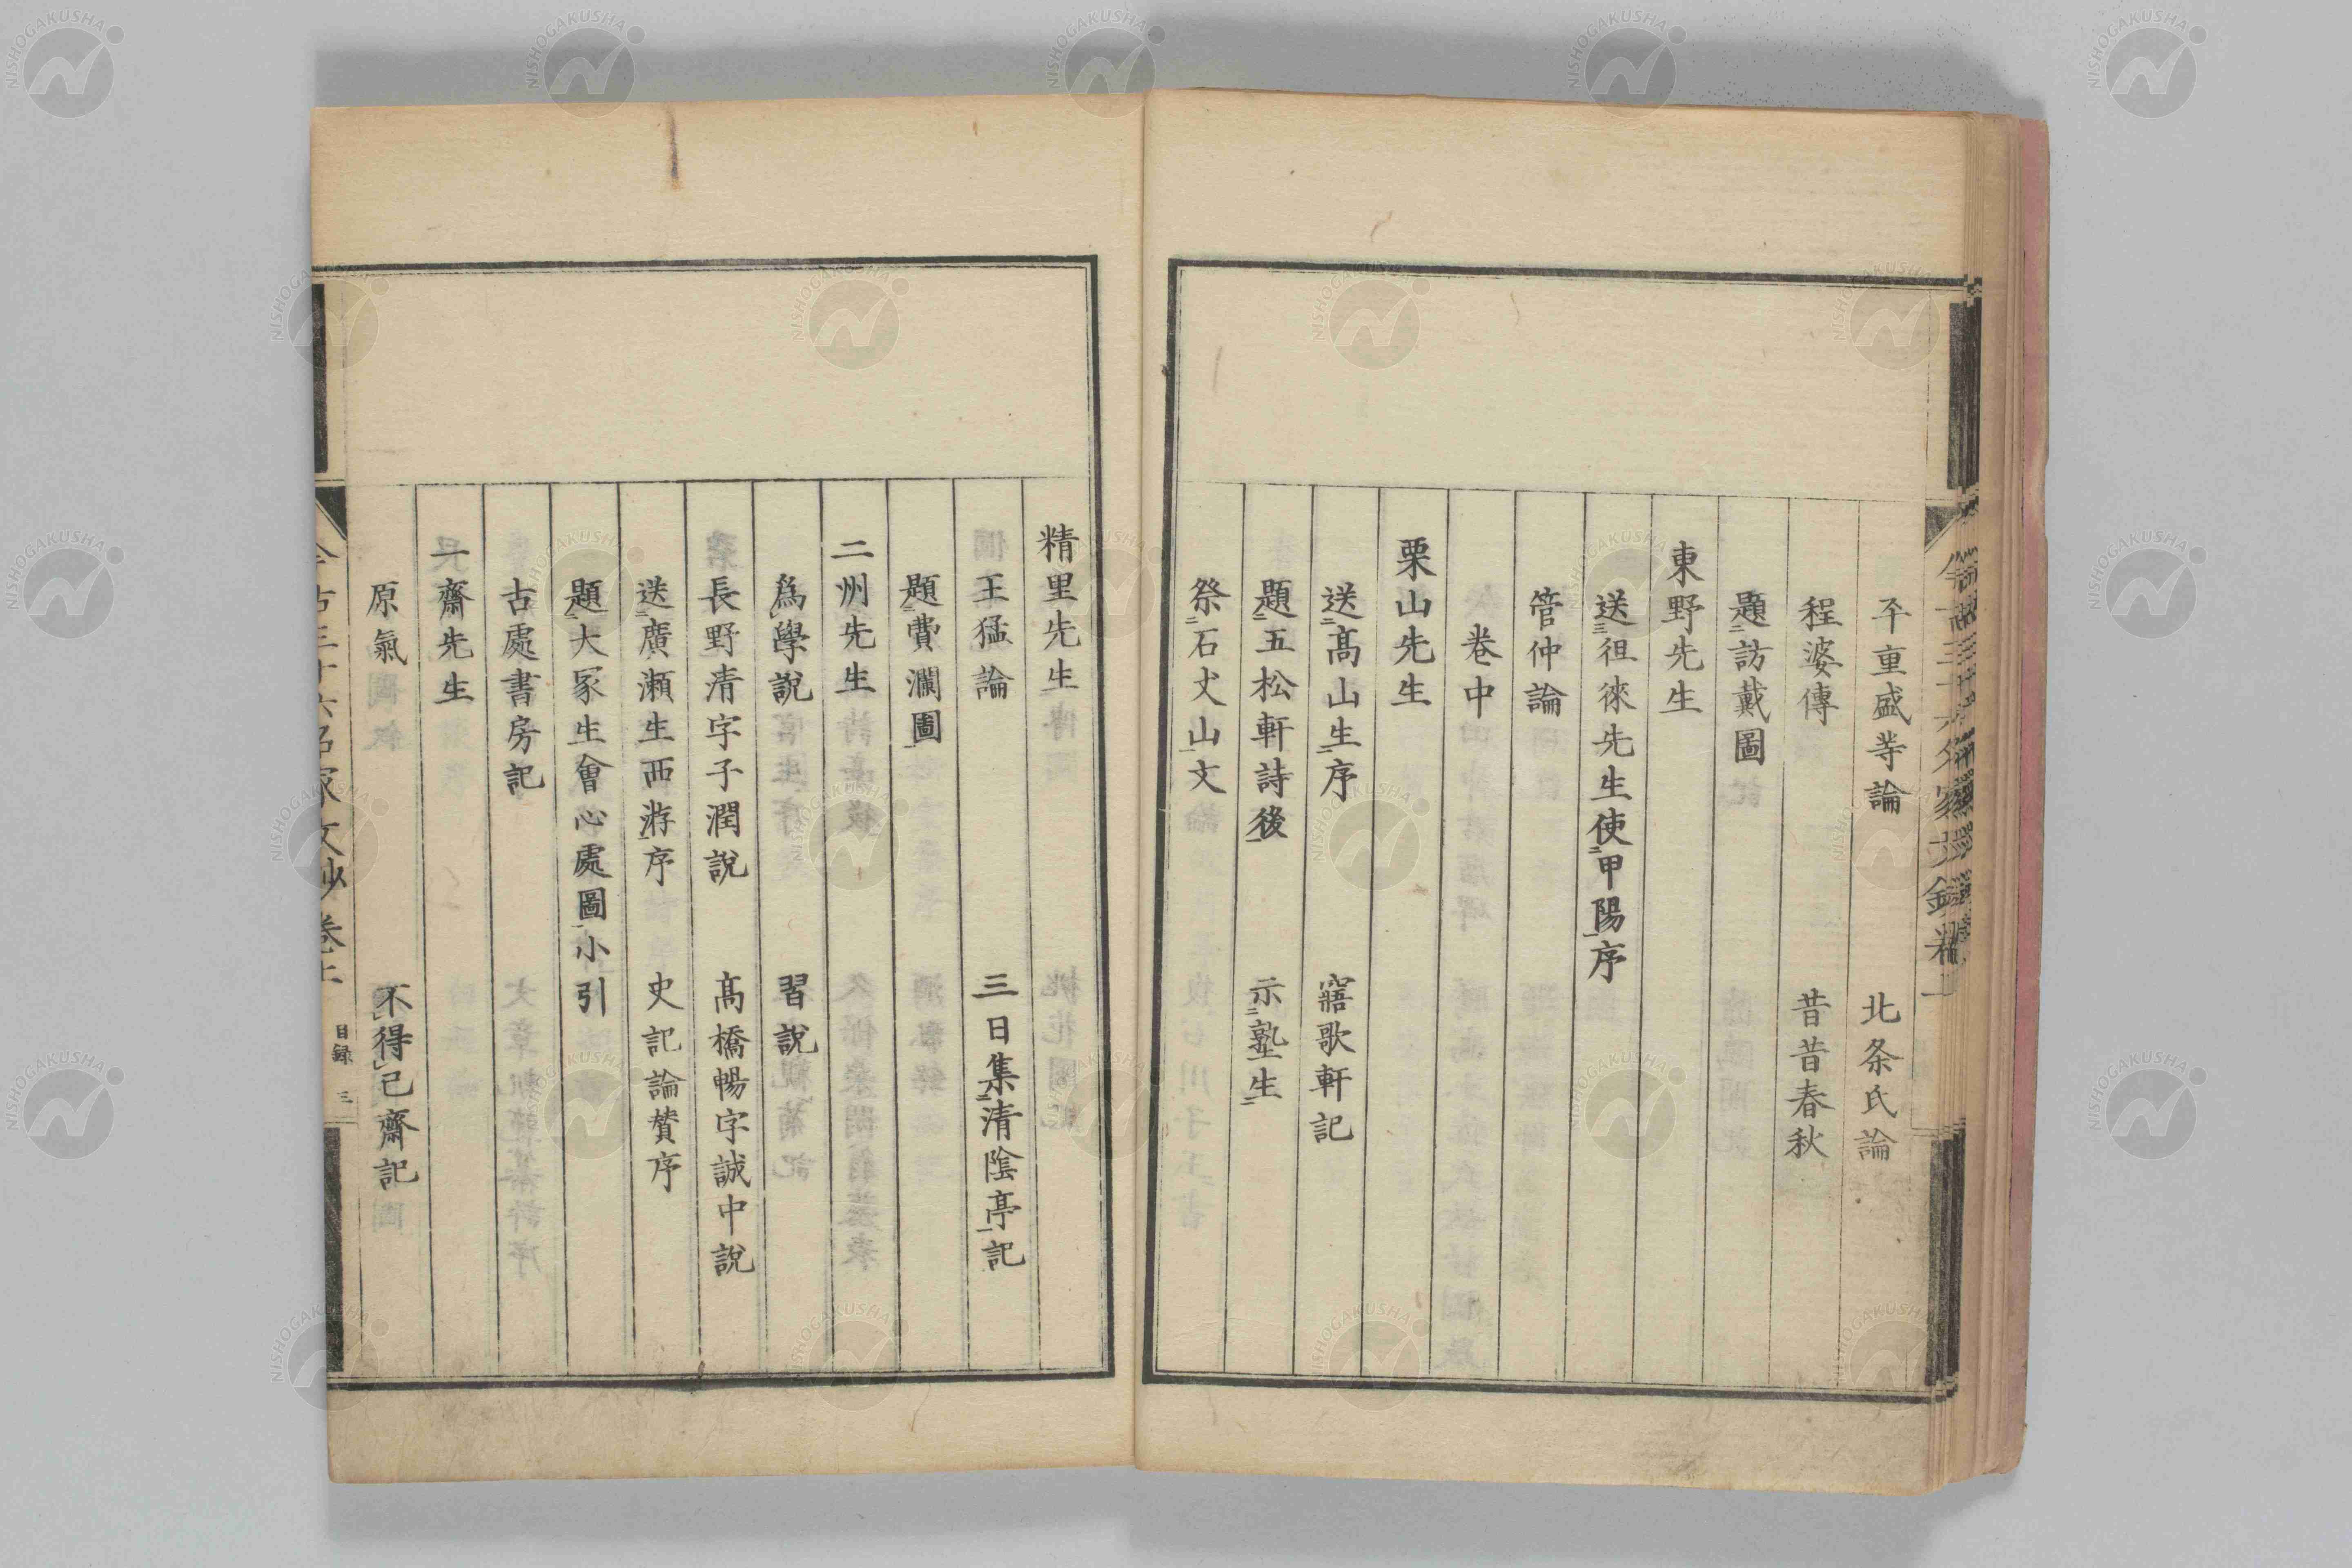 平重盛等論 北条氏論
程婆傳 昔昔春秋
題訪戴圖
東野先生
送徂徠先生使甲陽序
管仲論
卷中
栗山先生
送髙山生序 寤歌軒記
題五松軒詩後 示塾生
祭石丈山文
精里先生
王猛論 三日集清陰亭記
題費瀾圖
二州先生
爲學說 習說
長野清字子潤說 髙橋暢字誠中說
送廣瀬生西游序 史記論贊序
題大冢生會心處圖小引
古處書房記
一齋先生
原氣 不得已齋記
今古三十六名家文鈔卷上 目録 三
NISHOGAKUSHA